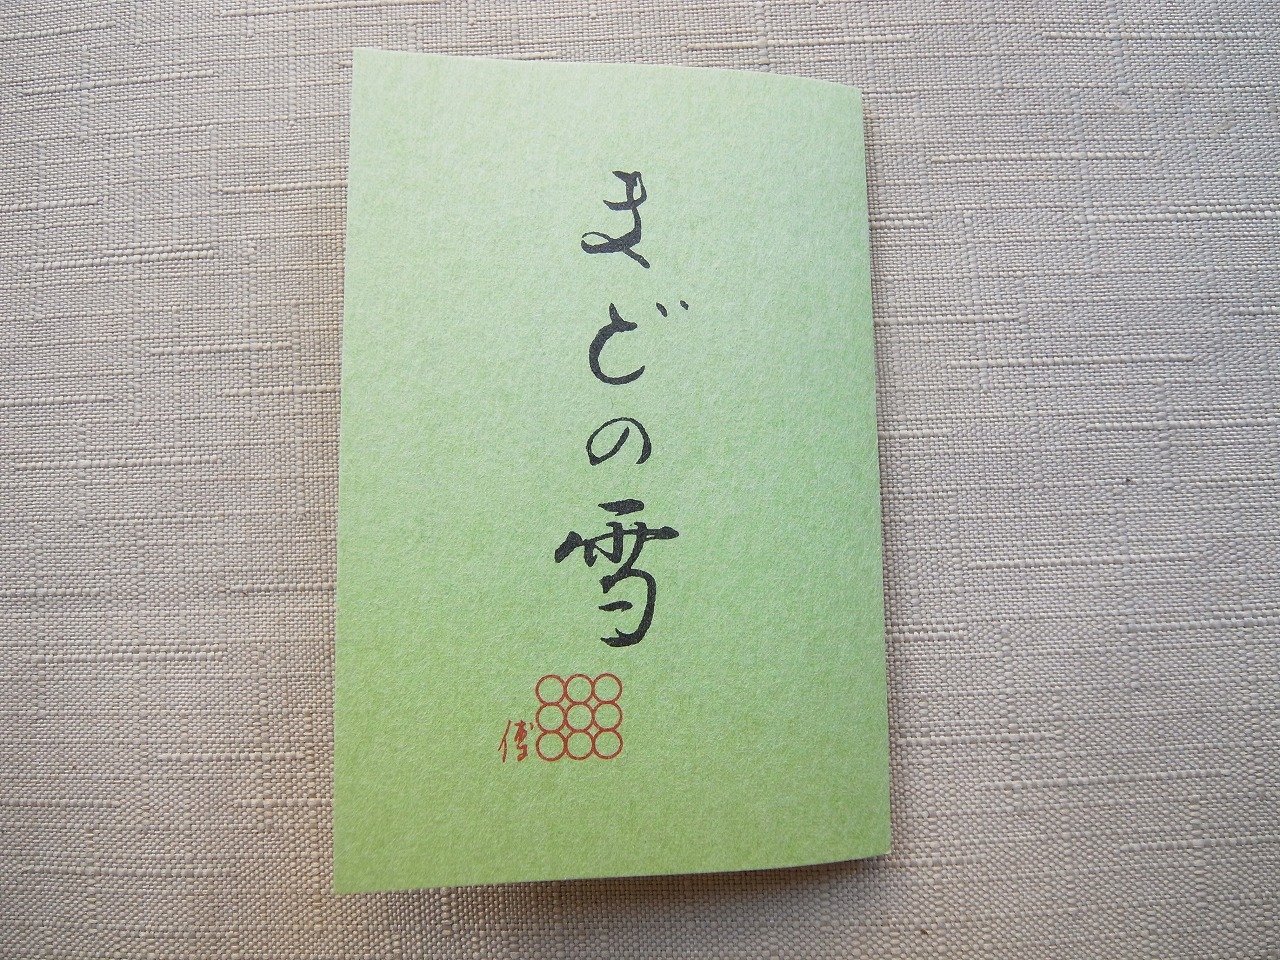 まどの雪